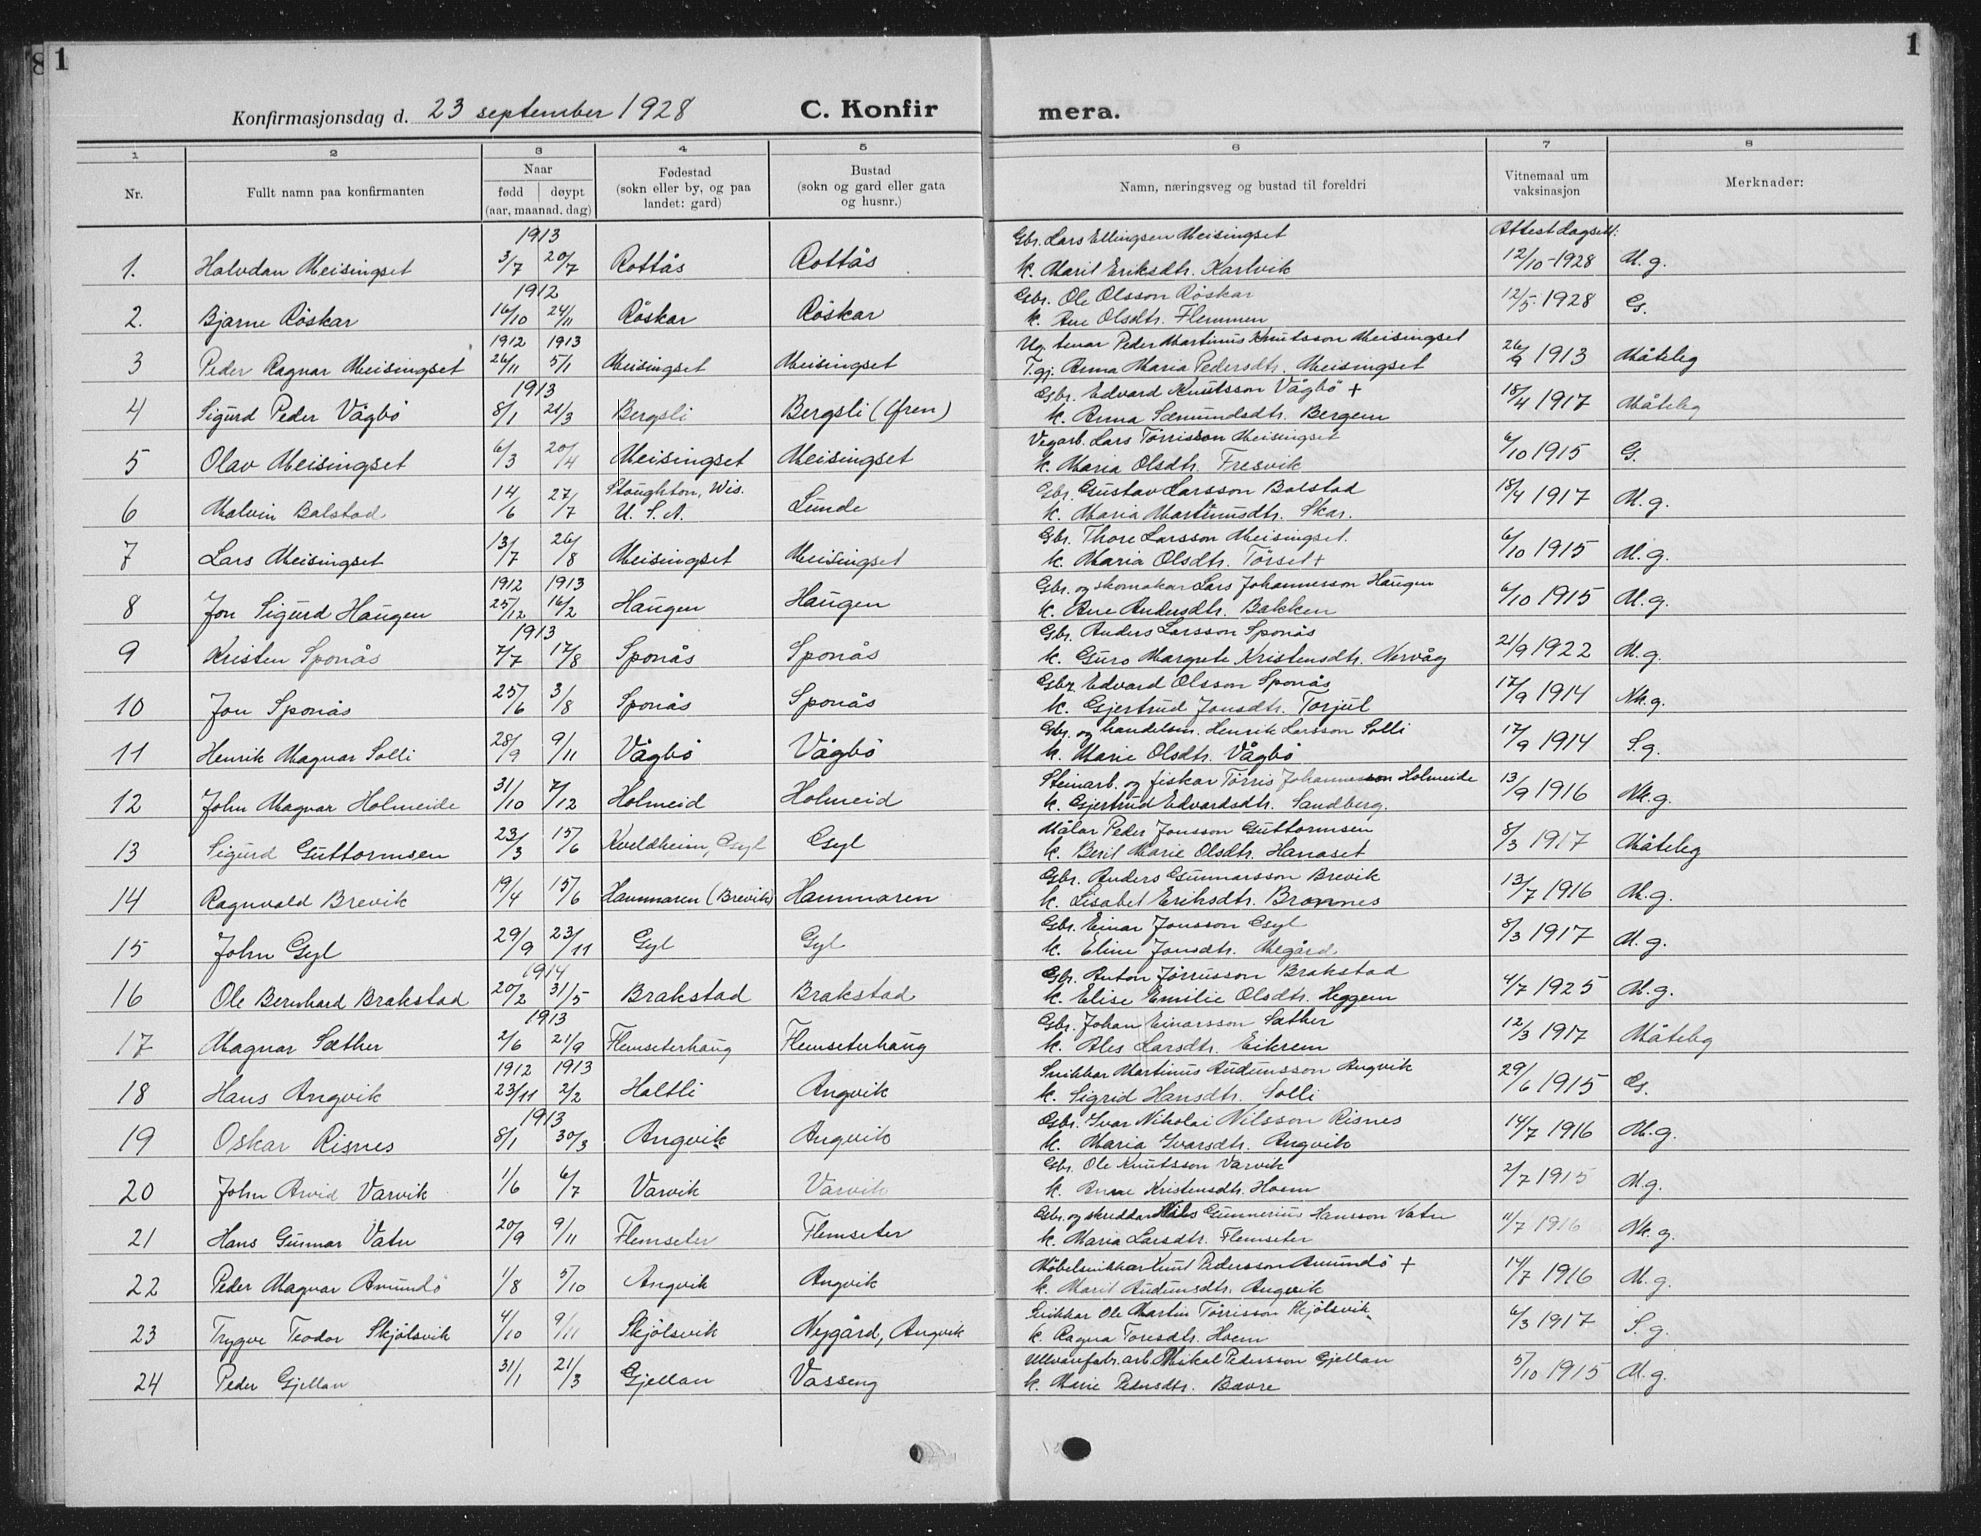 1
1
Konfirmasjonsdag d. 23 september 1928 C. Konfir mera.
1 2 3 4 5 6 7 8
Nr. Fullt namn paa konfirmanten Naar fødd døypt (aar, maanad, dag) Fødestad (sokn eller by, og paa landet: gard) Bustad (sokn og gard eller gata og husnr.) Namn, næringsveg og bustad til foreldri Vitnemaal um vaksinasjon Merknader:
1913 Gbr. Lars Ellingsen Meisingset Attest dagsett:
1. Halvdan Meisingset 3/7 20/7 Rottås Rottås k. Marit Eriksdtr. Karlvik 12/10-1928 M.g.
1912 Gbr. Ole Olsson Röskar
2. Bjarne Röskar 16/10 24/11 Röskar Röskar k. Ane Olsdtr. Flemmen 12/5 1928 G.
1912 1913 Ug. tenar Peder Martinus Knutsson Meisingset
3 Peder Ragnar Meisingset 26/11 5/1 Meisingset Meisingset T.gj. Anna Maria Pedersdtr. Meisingset 26/9 1913 Måteleg
1913 Gbr. Edvard Knutsson Vågbö +
4 Sigurd Peder Vågbö 8/1 21/3 Bergsli Bergsli (Ören) k. Anna Sæmundsdtr. Bergem 18/4 1917 Måteleg
Vegarb. Lars Törrisson Meisingset
5 Olav Meisingset 6/3 20/4 Meisingset Meisingset k. Maria Olsdtr. Fresvik 6/10 1915 G.
Stoughton, Wis. Gbr. Gustav Larsson Bolstad
6 Malvin Bolstad 14/6 27/7 U.S.A. Lunde k. Maria Martinusdtr. Skar. 18/4 1917 M.g.
Gbr. Thore Larsson Meisingset.
7 Lars Meisingset 13/7 26/8 Meisingset Meisingset k. Maria Olsdtr. Törset + 6/10 1915 M.g.
1912 1913 Gbr. og skomakar Lars Johannesson Haugen
8 Jon Sigurd Haugen 25/12 16/2 Haugen Haugen k. Ane Andersdtr. Bakken 6/10 1915 M.g.
1913 Gbr. Anders Larsson Sponås
9 Kristen Sponås 7/7 17/8 Sponås Sponås k. Guro Margrete Kristensdtr. Nervåg 21/9 1922 M.g.
Gbr. Edvard Olsson Sponås
10 Jon Sponås 25/6 3/8 Sponås Sponås k. Gjertrud Jonsdtr. Torjul 17/9 1914 Mk.g.
Gbr. og handelsm. Henrik Larsson Solli
11 Henrik Magnar Solli 28/9 9/11 Vågbö Vågbö k. Marie Olsdtr. Vågbö 17/9 1914 S.g.
Steinarb. og fiskar Törris Johannesson Holmeide
12 John Magnar Holmeide 31/10 7/12 Holmeid Holmeid k. Gjertrud Edvardsdtr. Sandberg. 13/9 1916 Mk.g.
Målar Peder Jonsson Guttormsen
13 Sigurd Guttormsen 23/3 15/6 Kveldheim, Gyl Gyl k. Berit Marie Olsdtr. Hanaset 8/3 1917 Måteleg
Gbr. Anders Gunnarsson Brevik
14 Ragnvald Brevik 19/4 15/6 Hammaren (Brevik) Hammaren k. Lisabet Eriksdtr. Bronnes 13/7 1916 M.g.
Gbr. Einar Jonsson Gyl
15 John Gyl 29/9 23/11 Gyl Gyl k. Eline Jonsdtr. Megård. 8/3 1917 M.g.
1914 Gbr. Anton Jörrisson Brakstad
16 Ole Bernhard Brakstad 20/2 31/5 Brakstad Brakstad k. Elise Emilie Olsdtr. Heggem 4/7 1925 M.g.
1913 Gbr. Johan Einarsson Sæther
17 Magnar Sæther 2/6 21/9 Flemseterhaug Flemseterhaug k. Ales Larsdtr. Eikrem 12/3 1917 Måteleg
1912 1913 Snikkar Martinus Audunsson Angvik
18 Hans Angvik 23/11 2/2 Holtli Angvik k. Sigrid Hansdtr. Solli 29/6 1915 G.
1913 Gbr. Ivar Nikolai Nilsson Risnes
19 Oskar Risnes 8/1 30/3 Angvik Angvik k. Maria Ivarsdtr. Angvik 14/7 1916 M.g.
Gbr. Ole Knutsson Varvik
20 John Arvid Varvik 1/6 6/7 Varvik Varvik k. Anne Kristensdtr. Hoem 2/7 1915 M.g.
Gbr. og skreddar Nils Gunnerius Hansson Vatn
21 Hans Gunnar Vatn 20/9 9/11 Flemseter Flemseter k. Maria Larsdtr. Flemseter 11/7 1916 Mk.g.
Möbelsnikkar Knut Pedersson Amundö +
22 Peder Magnar Amundö 1/8 5/10 Angvik Angvik k. Marit Audunsdtr. Angvik 14/7 1916 M.g.
Snikkar Ole Martin Törrisson Skjölsvik
23 Trygve Teodor Skjölsvik 4/10 9/11 Skjölsvik Nygård, Angvik k. Ragna Toresdtr. Hoem 6/3 1917 S.g.
Ullvarefabr.arb. Mikal Pedersson Gjellan
24 Peder Gjellan 31/1 21/3 Gjellan Vasseng k. Marie Pedersdtr. Bævre 5/10 1915 M.g.